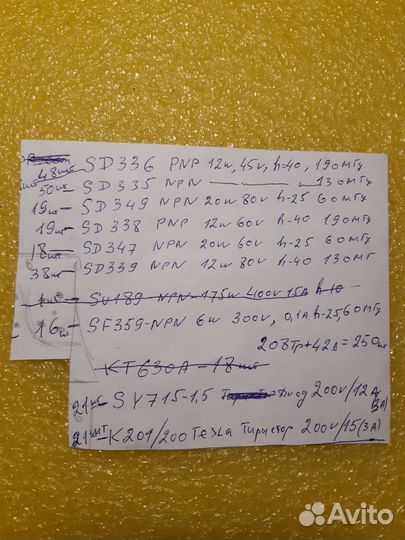 48шт SD336 PNP 12w, 45v, h-40, 190МГц
50шт - SD335 NPN ——————— 130МГц
19ш - SD349 NPN 20w 80v h-25 60МГц
19ш - SD338 PNP 12w 60v h-40 190МГц
18ш - SD347 NPN 20w 60v h-25 60МГц
38шт SD339 NPN 12w 80v h-40 130МГ
1шт - SU189 - NPN - 175w 400v 15A h-10
16ш - SF359-NPN 6w 300v, 0,1A h-25, 60МГц
208Тр+42Д=250шт
КТ630А - 18шт
21шт - SY715-1,5 Диод 200v/12А (3А)
21шт - К201/200 Tesla Тиристор 200v/15(3А)
Avito